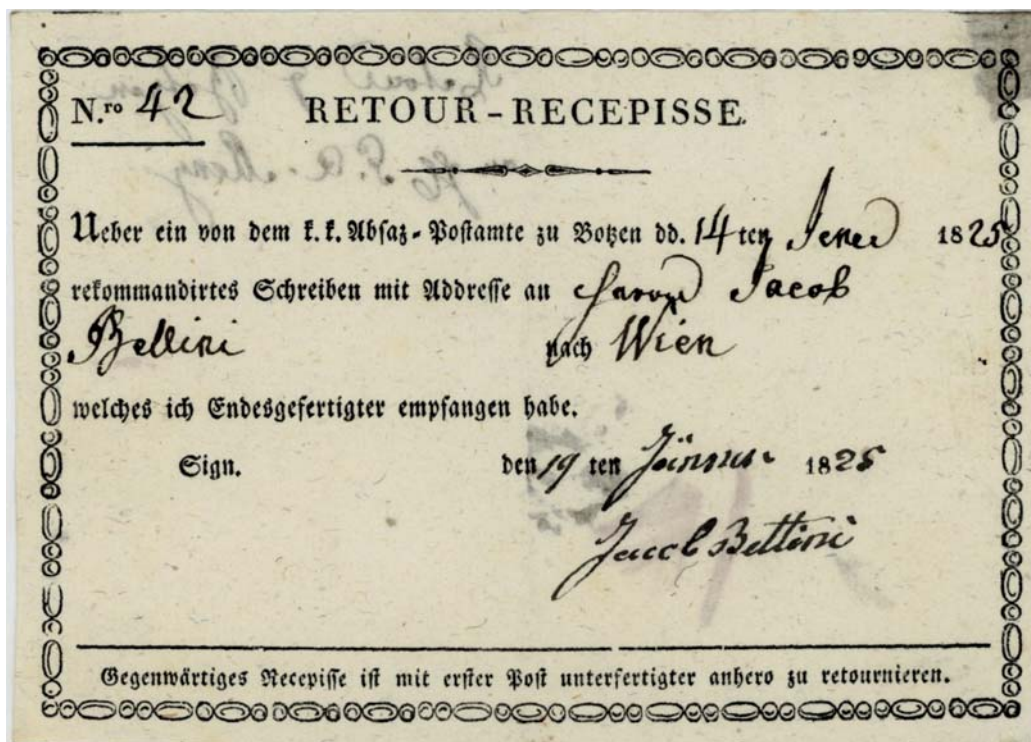 N.ro 42 RETOUR-RECEPISSE.
Ueber ein von dem k. k. Absaz-Postamte zu Botzen dd. 14 ten Jener 1825
rekommandirtes Schreiben mit Addresse an Jacob
Bettini nach Wien
welches ich Endesgefertigter empfangen habe.
Sign. den 19 ten Jänner 1825
Jacob Bettini
Gegenwärtiges Recepisse ist mit erster Post unterfertigter anhero zu retournieren.